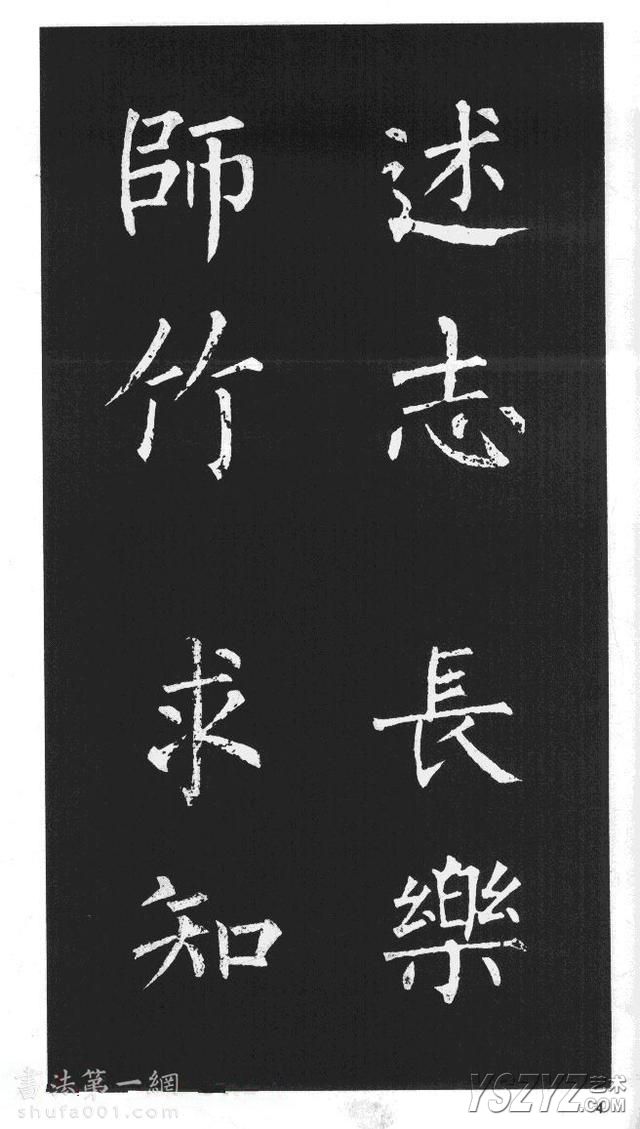 述志長樂
師竹求知
書法第一網
shufa001.com
YSZYZ艺术
.COM
4